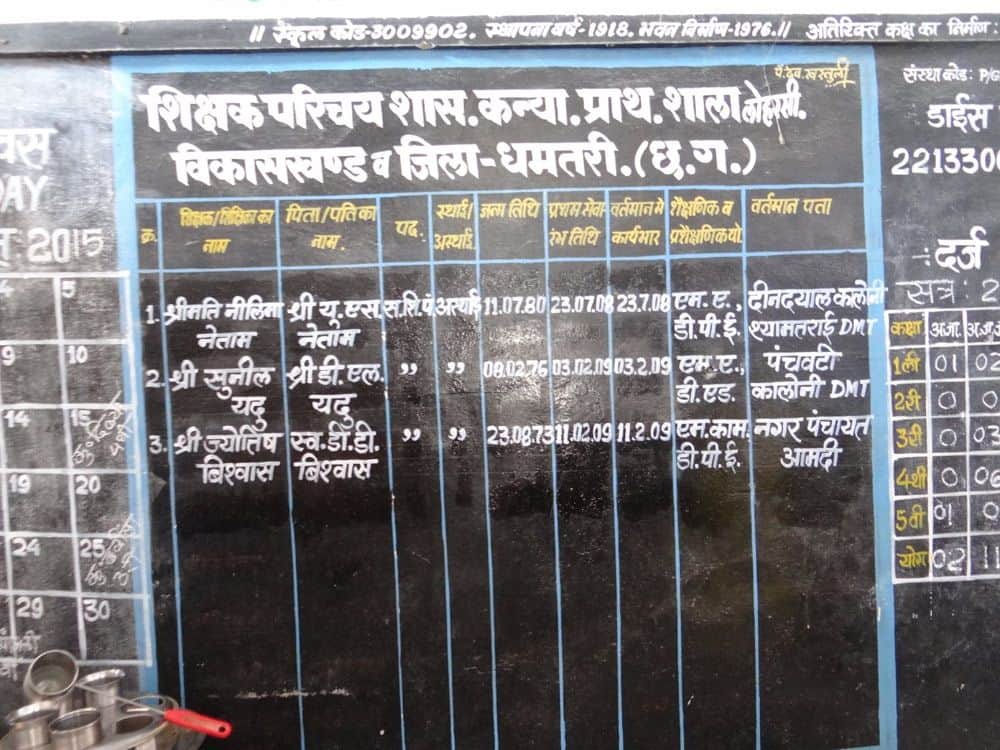 ॥ स्कूल कोड-3009902. स्थापना वर्ष-1918. भवन निर्माण-1976.॥ अतिरिक्त कक्ष का निर्माण:
शिक्षक परिचय शास. कन्या. प्राथ. शाला लोहरसी.
विकासखण्ड व जिला-धमतरी. (छ.ग.)
क्र. शिक्षक/शिक्षिका का नाम पिता/पति का नाम. पद. स्थाई/अस्थाई. जन्म तिथि प्रथम सेवा रंभ तिथि वर्तमान मे कार्यभार शैक्षणिक व प्रशैक्षणिक यो. वर्तमान पता
1. श्रीमति नीलिमा श्री यु.एस. स.शि.पं अस्थाई 11.07.80 23.07.08 23.7.08 एम.ए., दीनदयाल कालोनी
नेताम नेताम डी.पी.ई. श्यामतराई DMT
2. श्री सुनील श्री डी.एल. ,, ,, 08.02.76 03.02.09 03.2.09 एम.ए., पंचवटी
यदु यदु डी.एड. कालोनी DMT
3. श्री ज्योतिष स्व.डी.डी. ,, ,, 23.08.73 11.02.09 11.2.09 एम.काम. नगर पंचायत
बिश्वास बिश्वास डी.पी.ई. आमदी
DAY
2015
5
9 10
14 15
19 20
24 25
29 30
संस्था कोड: P/G
डाईस
221330
:दर्ज
सत्र: 2
कक्षा अजा. अ.ज.
1ली 01 02
2री 0 0
3री 0 03
4थी 0 06
5वी 01 0
योग 02 11